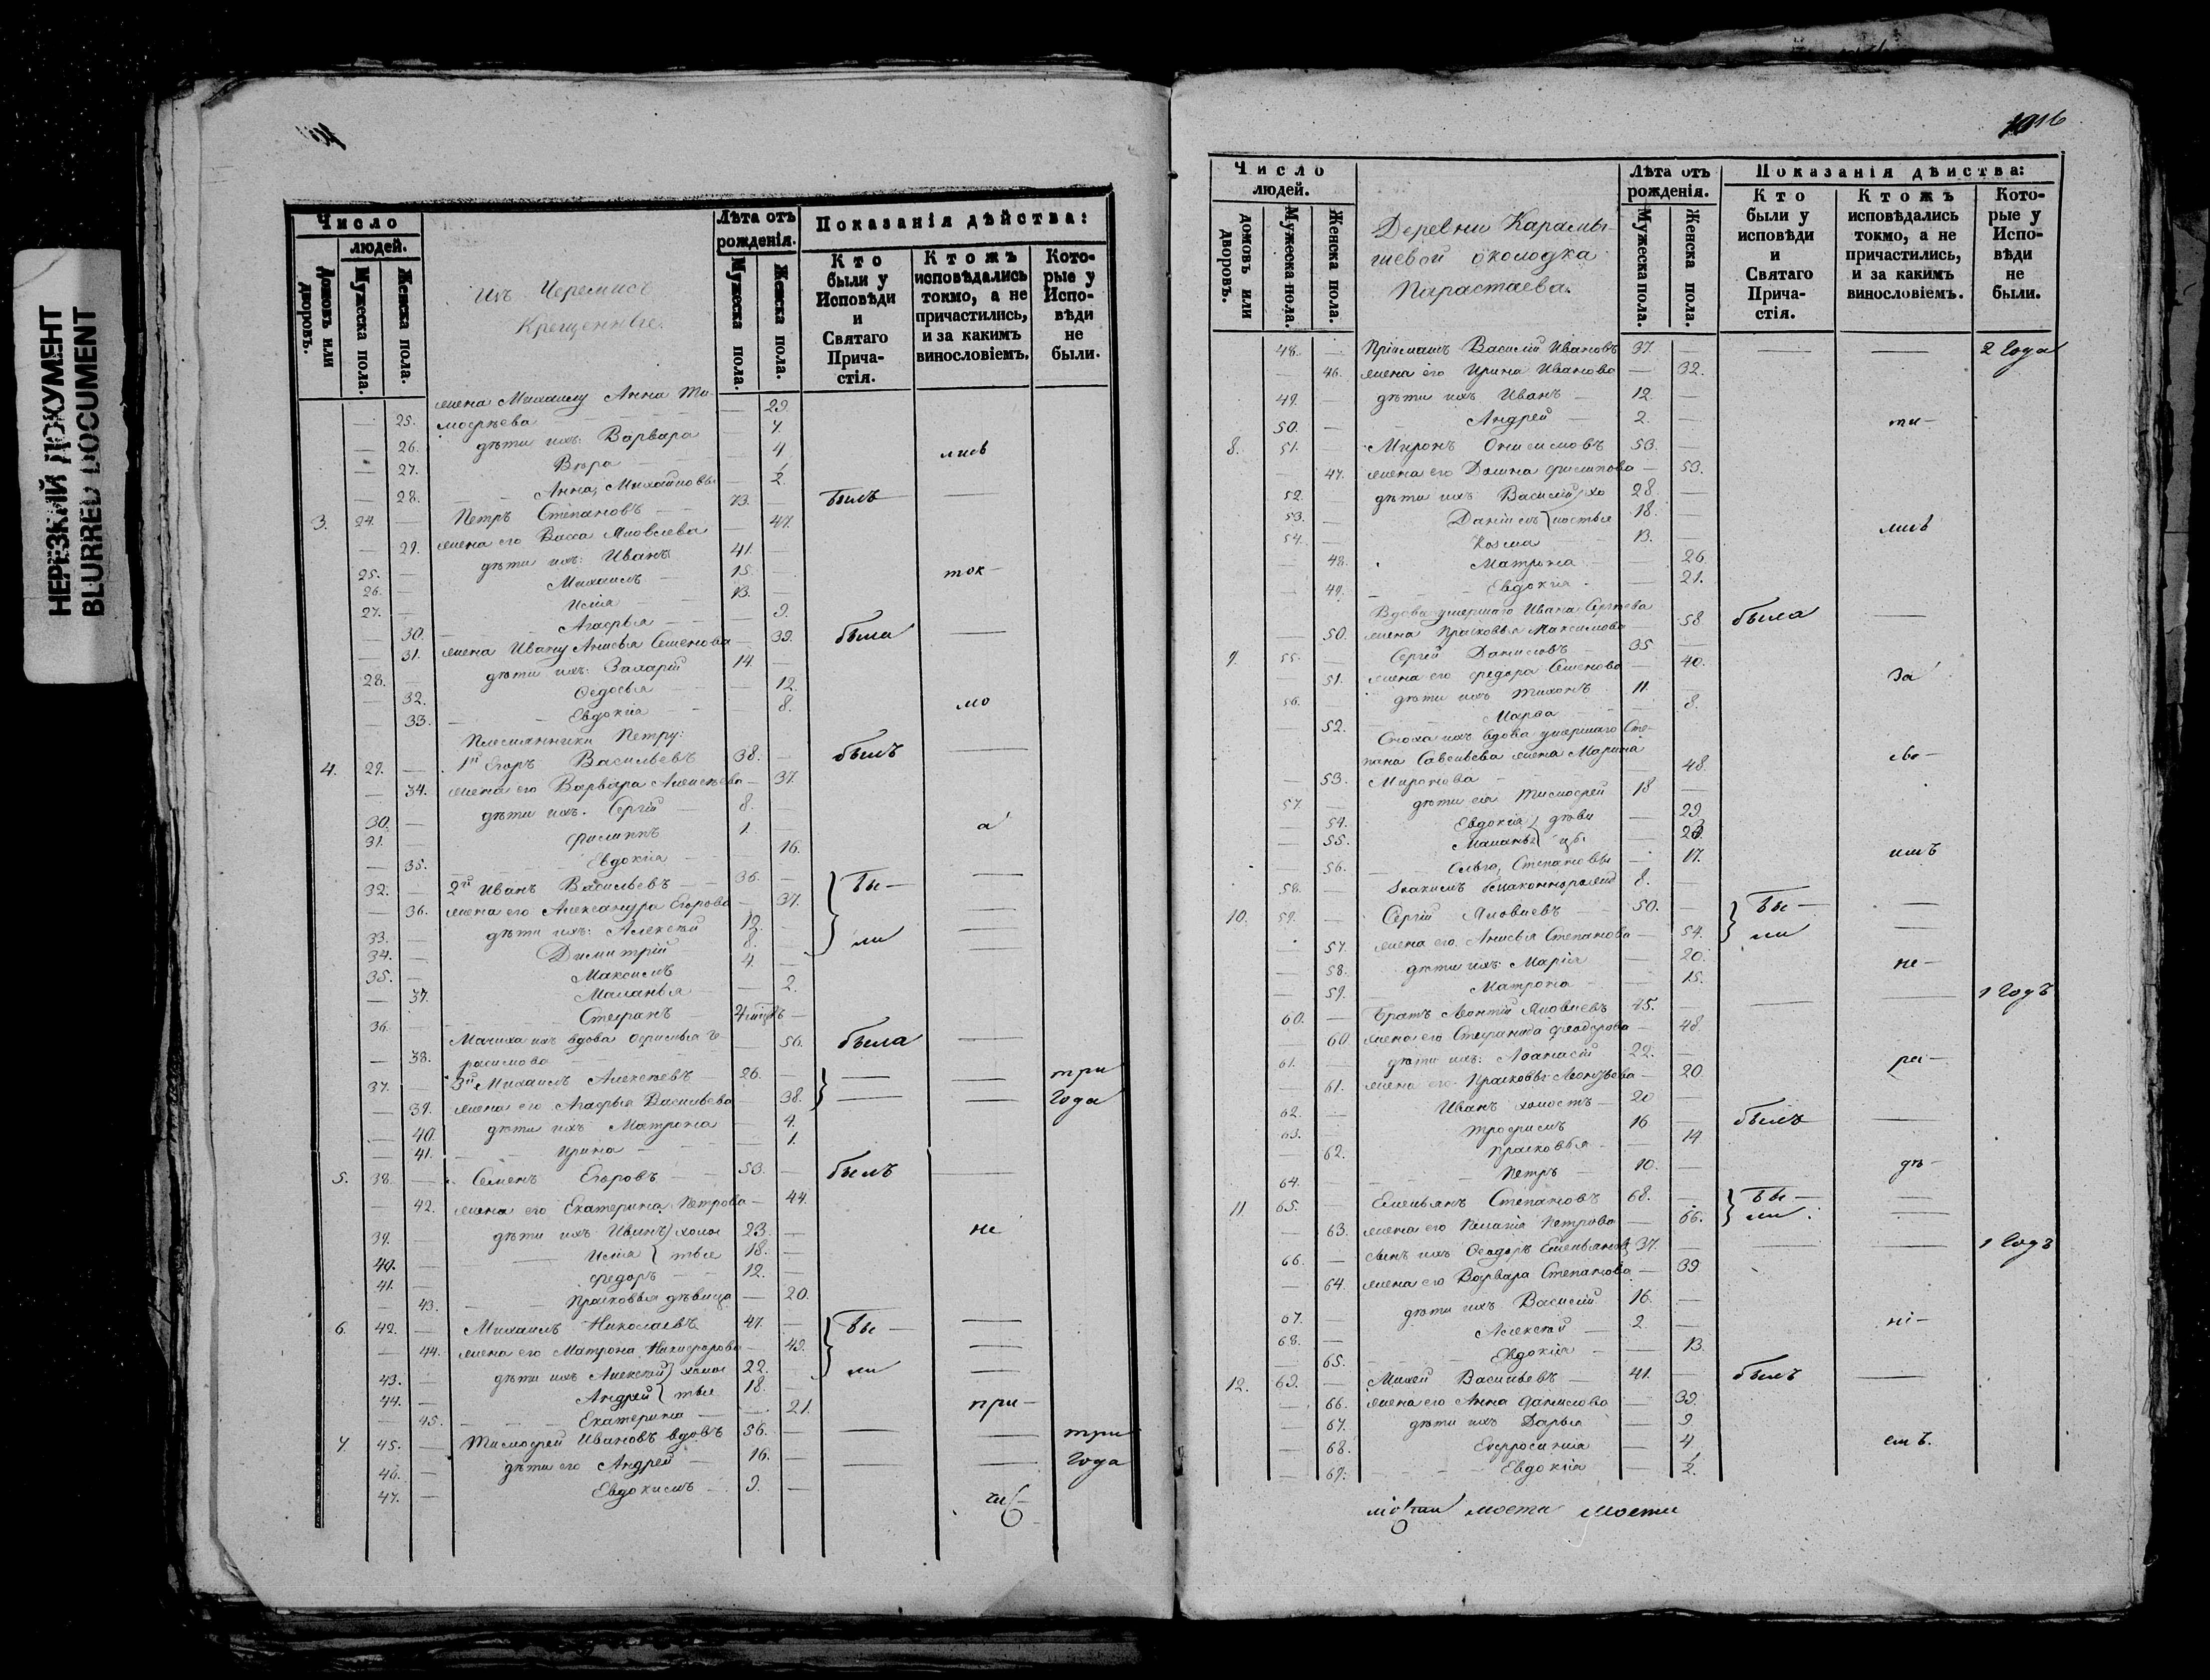 НЕРЕЗКИЙ ДОКУМЕНТ
BLURRED DOCUMENT
Число людей.
Домовъ или дворовъ.
Мужеска пола.
Женска пола.
Изъ Черемисъ
Крещенные.
Лѣта отъ рожденія.
Мужеска пола.
Женска пола.
Показанія дѣйства:
Кто были у Исповѣди и Святаго Причастія.
Ктожъ исповѣдались токмо, а не причастились, и за какимъ винословіемъ.
Которые у Исповѣди не были.
жена Михаилу Анна Ти-
— 25. моѳеева — 29.
— 26. дѣти ихъ: Варвара — 7.
— 27. Вѣра — 4 лись
— 28. Анна, Михайловы — 1/2.
3. 24. — Петръ Степановъ 73. — былъ —
— 29. жена его Васса Яковлева — 47.
25. — дѣти ихъ: Иванъ 41. —
26. — Михаилъ 15. — ток-
27. — Илія 13. —
— 30. Агафья — 9.
— 31. жена Ивану Анисья Семенова — 39. была —
28. — дѣти ихъ: Захарій 14. —
— 32. Ѳедосья — 12.
— 33. Евдокія — 8. мо
Племянники Петру:
4. 29. — 1й Егоръ Васильевъ 38. — былъ —
— 34. жена его Варвара Алексѣева — 37.
30. — дѣти ихъ. Сергій 8. —
31. — Филиппъ 1. — а
— 35. Евдокія — 16.
32. — 2й Иванъ Васильевъ 36. — бы- —
— 36. жена его Александра Егорова — 37. —
33. — дѣти ихъ: Алексѣй 12. — ли —
34. — Димитрій 8. — —
35. — Максимъ 4. —
— 37. Маланья — 2.
36. — Стефанъ —
Мачиха ихъ вдова
— 38. расимова — 56. была —
37. — 3й Михаилъ Алексѣевъ 26. — — — три
— 39. жена его Агафья Васильева — 38. — — года
— 40. дѣти ихъ Матрона — 4.
— 41. Ирина — 1.
5. 38. — Семенъ Егоровъ 53. — былъ —
— 42. жена его Екатерина Петрова — 44.
39. — дѣти ихъ Иванъ холос 23. — не
40. — Илія тые 18. —
41. — Федоръ 12. —
— 43. Прасковья дѣвица — 20.
6. 42. — Михаилъ Николаевъ 47. — бы- —
— 44. жена его Матрона Никифорова — 49. —
43. — дѣти ихъ Алексѣй холос 22. — ли —
44. — Андрей тые 18. —
— 45. Екатерина — 21. при-
7. 45. — Тимофей Ивановъ вдовъ 56. — — — три
46. — дѣти его Андрей 16. — — — года
47. — Евдокимъ 9. —
16
Число людей.
домовъ или дворовъ.
Мужеска пола.
Женска пола.
Деревни Карамы-
шевой околодка
Парастаева.
Лѣта отъ рожденія.
Мужеска пола.
Женска пола.
Показанія дѣиства:
Кто были у исповѣди и Святаго Причастія.
Ктожъ исповѣдались токмо, а не причастились, и за какимъ винословіемъ.
Которые у Исповѣди не были.
48. — Пріемышъ Василій Ивановъ 37. — — — 2 года
— 46. жена его Ирина Иванова — 32.
49. — дѣти ихъ Иванъ 12. —
50. — Андрей 2. — ти-
8. 51. — Миронъ Онисимовъ 53. —
— 47. жена его Домна Филипова — 53.
52. — дѣти ихъ Василій хо 28. —
53. — Даніилъ лостые 18. —
54. — Козма 13. — лись
— 48. Матрона — 26.
— 49. Евдокія — 21.
Вдова умершаго Ивана Сергѣева
— 50. жена Прасковья Максимова — 58 была —
9. 55. — Сергѣй Даниловъ 35 —
— 51. жена его Федора Семенова — 40. за
56. — дѣти ихъ Тихонъ 11. —
— 52. Марѳа — 8.
Сноха ихъ вдова умершаго Сте-
пана Савельева жена Марина
— 53. Миронова — 48. сво-
57. — дѣти ея Тимофей 18 —
— 54. Евдокія дѣви — 29
— 55. Маланья цы —
— 56. Ольга, Степановы — 17. имъ
58. — Іоакимъ 8. —
10. 59. — Сергій Яковлевъ 50. — бы- —
— 57. жена его Анисья Степанова — 54. ли —
— 58. дѣти ихъ: Марія — 20. не-
— 59. Матрона — 15.
60. — Братъ Леонтій Яковлевъ 45. — — — 1 годъ
— 60. жена его Стефанида Феодорова — 48.
61. — дѣти ихъ: Аѳанасій 22. — ра-
— 61. жена его Прасковья Леонтьева — 20.
62. — Иванъ холостъ 20 —
63. — Трофимъ 16. — былъ —
— 62. Прасковья — 14
64. — Петръ 10. — дѣ-
11. 65. — Емельянъ Степановъ 68. — бы- —
— 63. жена его Пелагія Петрова — 66. ли —
66. — сынъ ихъ Ѳеодоръ Емельяновъ 37. — — — 1 годъ
— 64. жена его Варвара Степанова — 39
67. — дѣти ихъ Василій 16. —
68. — Алексѣй 2. — ні-
— 65. Евдокія — 13.
12. 69. — Михей Васильевъ 41. — былъ —
— 66. жена его Анна Данилова — 39.
— 67. дѣти ихъ Дарья — 9
— 68. Евфросинія — 4 емъ.
— 69. Евдокія — 1/2.
мости мости